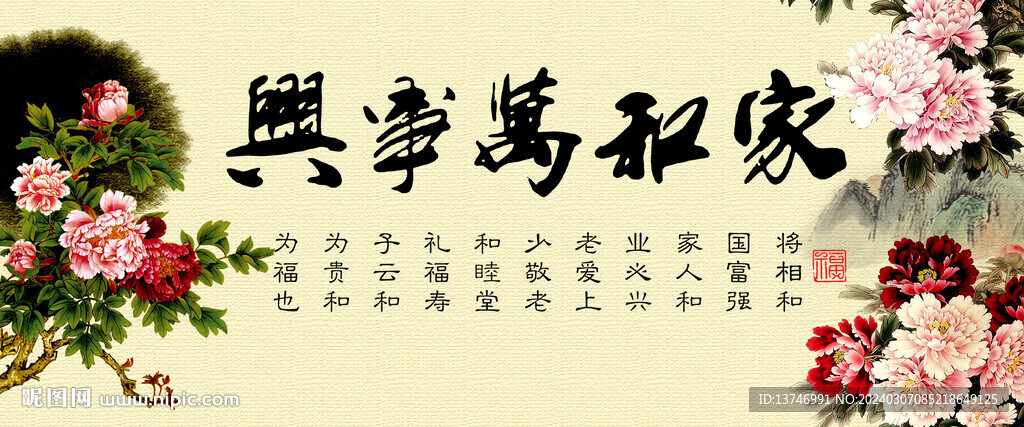 家和萬事興
将相和
国富强
家人和
业必兴
老爱上
少敬老
和睦堂
礼福寿
子云和
为贵和
为福也
福
昵图网 www.nipic.com
ID:13746991 NO:20240307085218649125